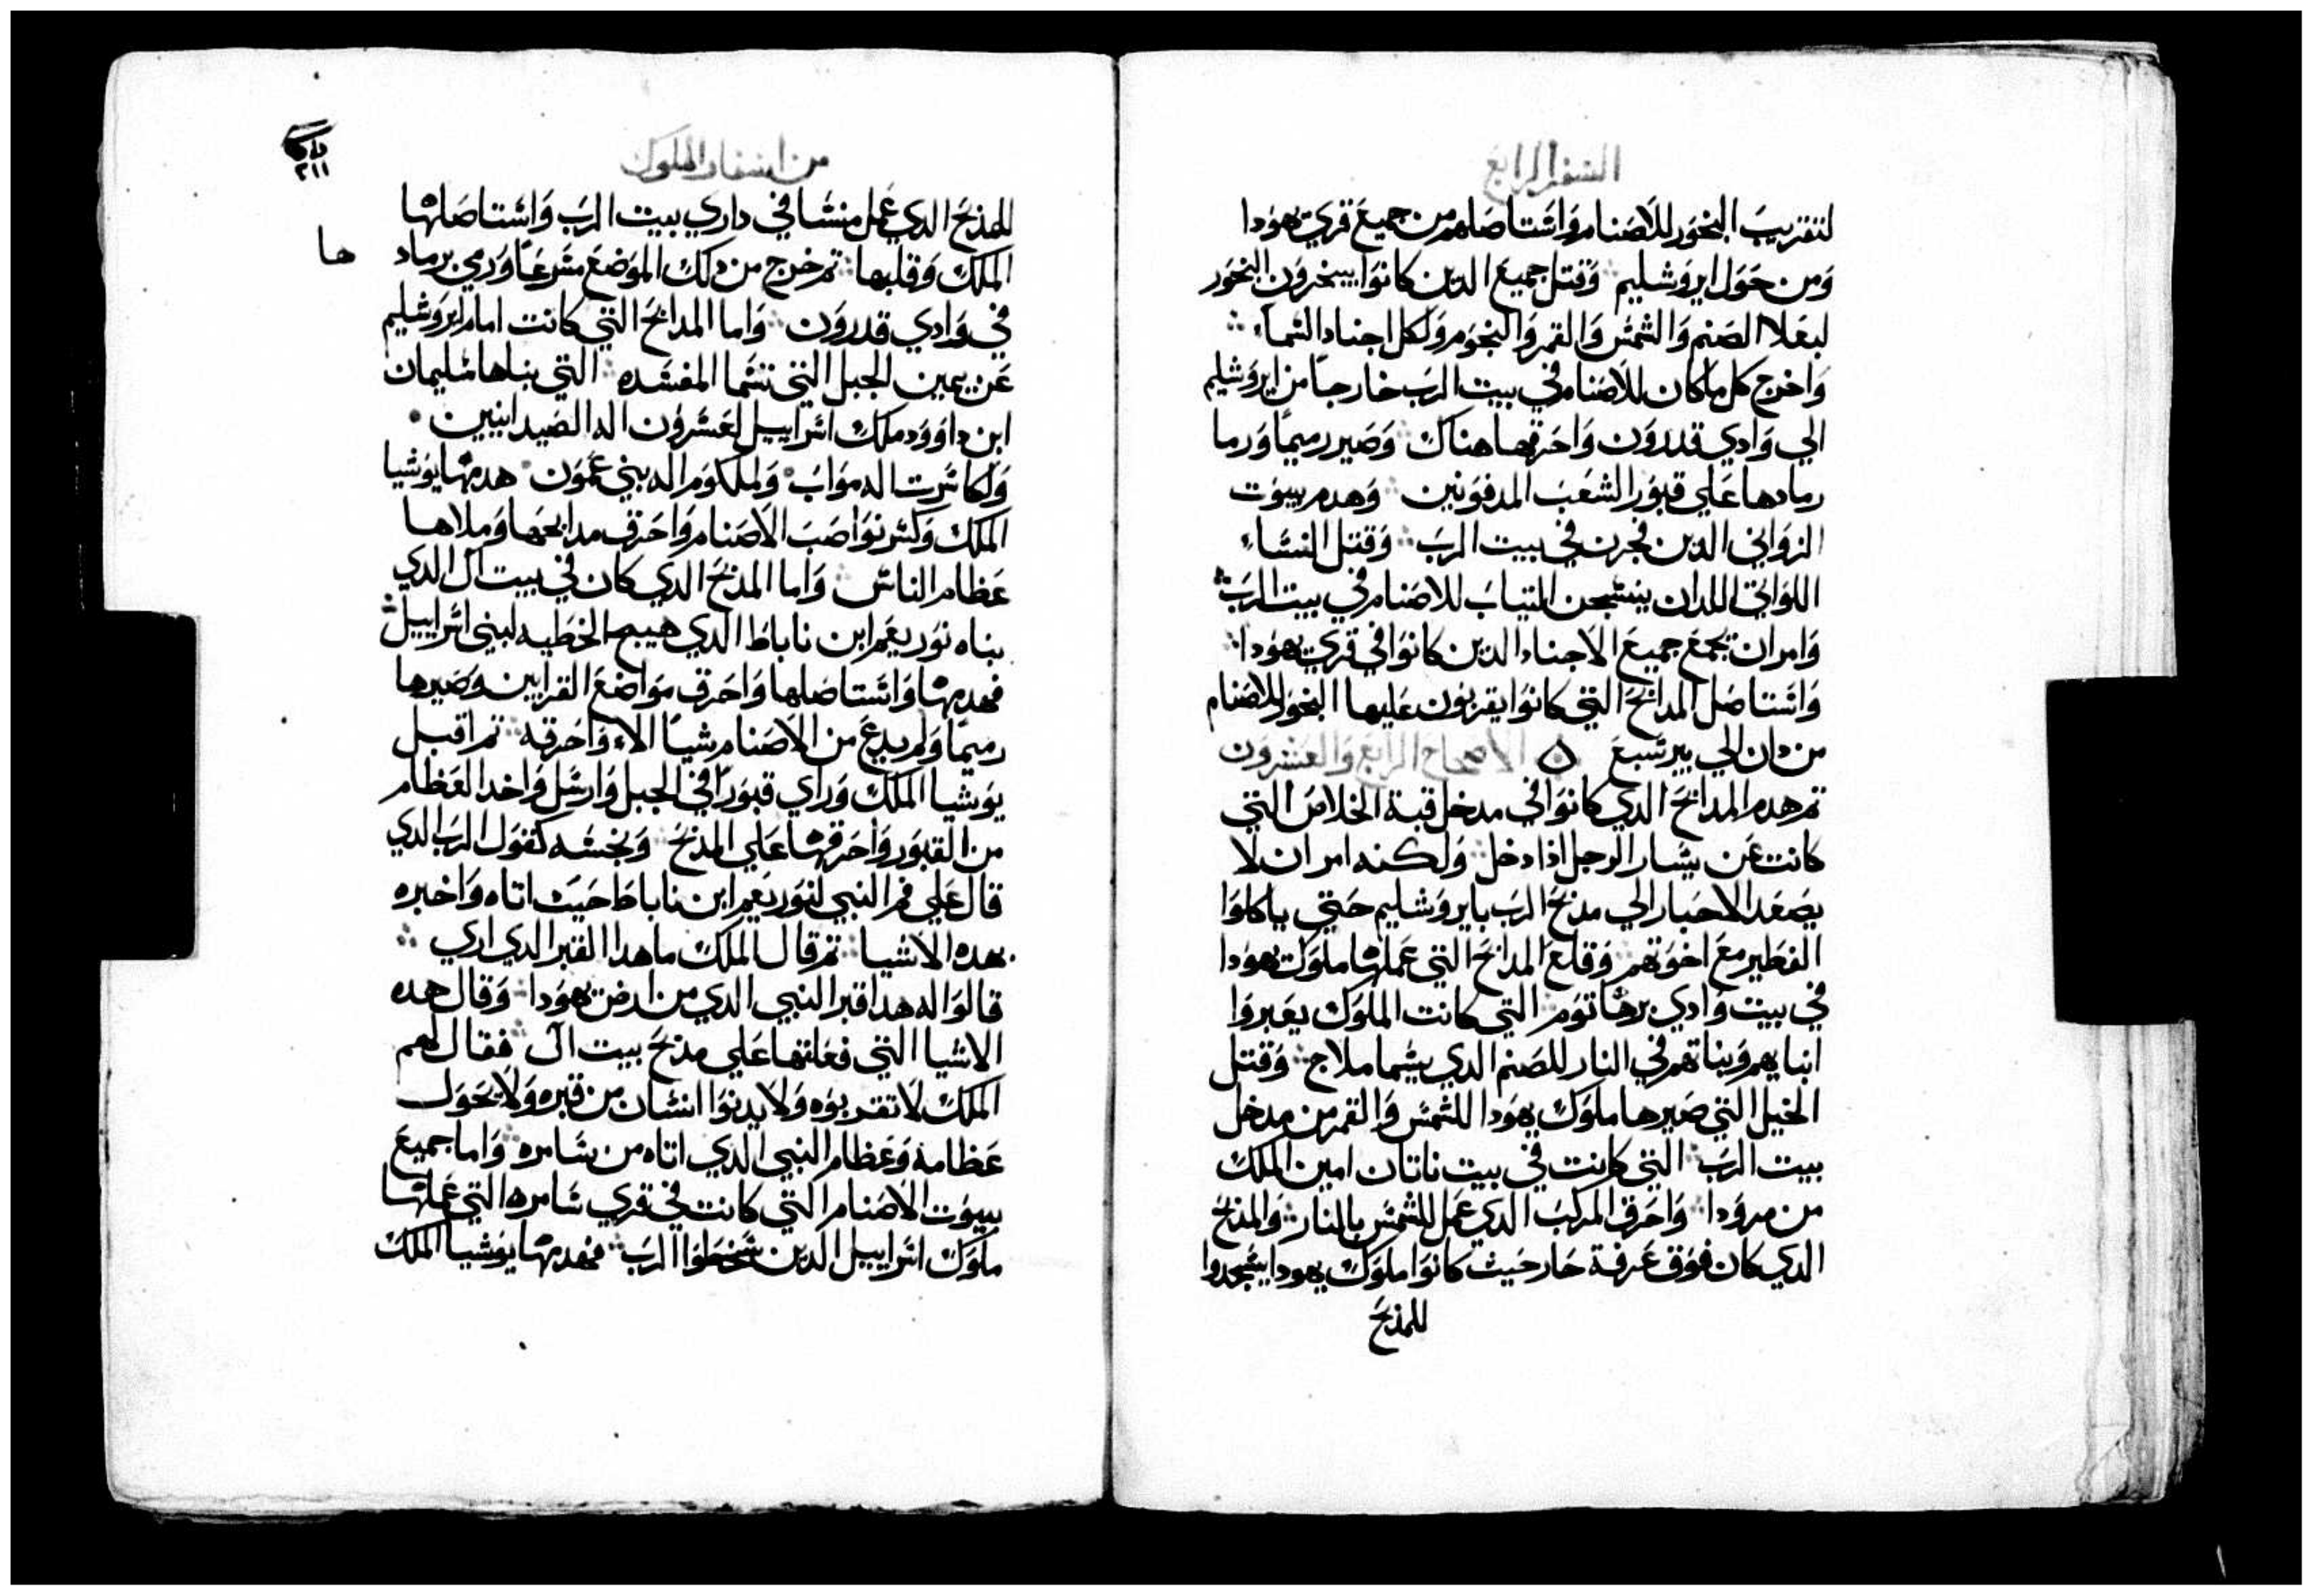 السفر الرابع
لتقريب البخور للاصنام واستاصلهم من جميع قري يهودا
ومن حول ايروشليم وقتل جميع الدين كانوا يبخرون البخور
لبعلا الصنم والشمس والقمر والنجوم ولكل اجناد السماء
واخرج كل ما كان للاصنام في بيت الرب خارجا من ايروشليم
الي وادي قدرون واحرقها هناك وصير رميما ورما
رمادها علي قبور الشعب المدفونين وهدم بيوت
الزواني الدين فجرن في بيت الرب وقتل النساء
اللواتي اللدان ينسجن التياب للاصنام في بيت الرب
وامر ان تجمع جميع الاجناد الدين كانوا في قري يهودا
واستاصل المدابح التي كانوا يقربون عليها البخور للاصنام
من دان الي بيرسبع ه الاصحاح الرابع والعشرون
تم هدم المدابح الدي كانوا في مدخل قبة الخلاص التي
كانت عن يسار الرجل اذا دخل ولكنه امر ان لا
يصعد الاحبار الي مذبح الرب بايروشليم حتي ياكلوا
الفطير مع اخوتهم وقلع المدابح التي عملها ملوك يهودا
في بيت وادي برهاتوم التي كانت الملوك يعبروا
ابنايهم وبناتهم في النار للصنم الدي يسما ملاج وقتل
الخيل التي صيرها ملوك يهودا للشمس والقمر من مدخل
بيت الرب التي كانت في بيت ناتان امين الملك
من مرودا واحرق المركب الدي عمل للشمس بالنار والمذبح
الدي كان فوق غرفة حار حيث كانوا ملوك يهودا يسجدوا
للمذبح
من اسفار الملوك
٢١١
للمذبح الدي عمل منشا في داري بيت الرب واستاصلها
الملك وقلبها تم خرج من دلك الموضع مسرعا ورمي برماد ها
في وادي قدرون واما المدابح التي كانت امام ايروشليم
عن يمين الجبل التي تسما المفسده التي بناها سليمان
ابن داوود ملك اسراييل لعسرون اله الصيدانيين
ولكاسرت اله مواب ولملكوم اله بني عمون هدمها يوشيا
الملك وكسر نواصب الاصنام واحرق مدابحها وملاها
عظام الناس واما المذبح الدي كان في بيت ال الدي
بناه نوربعم ابن ناباط الدي هيج الخطيه لبني اسراييل
فهدمها واستاصلها واحرق مواضع القرابين وصيرها
رميما ولم يدع من الاصنام شيا الاء واحرقه تم اقبل
يوشيا الملك وراي قبورا في الجبل وارسل واخد العظام
من القبور واحرقها علي المذبح ونجسه كقول الرب الدي
قال علي فم النبي لنوربعم ابن ناباط حيت اتاه واخبره
بهده الاشيا تم قال الملك ما هدا القبر الدي اري
قالوا له هدا قبر النبي الدي من ارض يهودا وقال هده
الاشيا التي فعلتها علي مذبح بيت ال فقال لهم
الملك لا تقربوه ولا يدنوا انسان من قبره ولا يحول
عظامه وعظام النبي الدي اتاه من سامره واما جميع
بيوت الاصنام التي كانت في قري سامره التي عملها
ملوك اسراييل الدين سخطوا الرب فهدمها يوشيا الملك